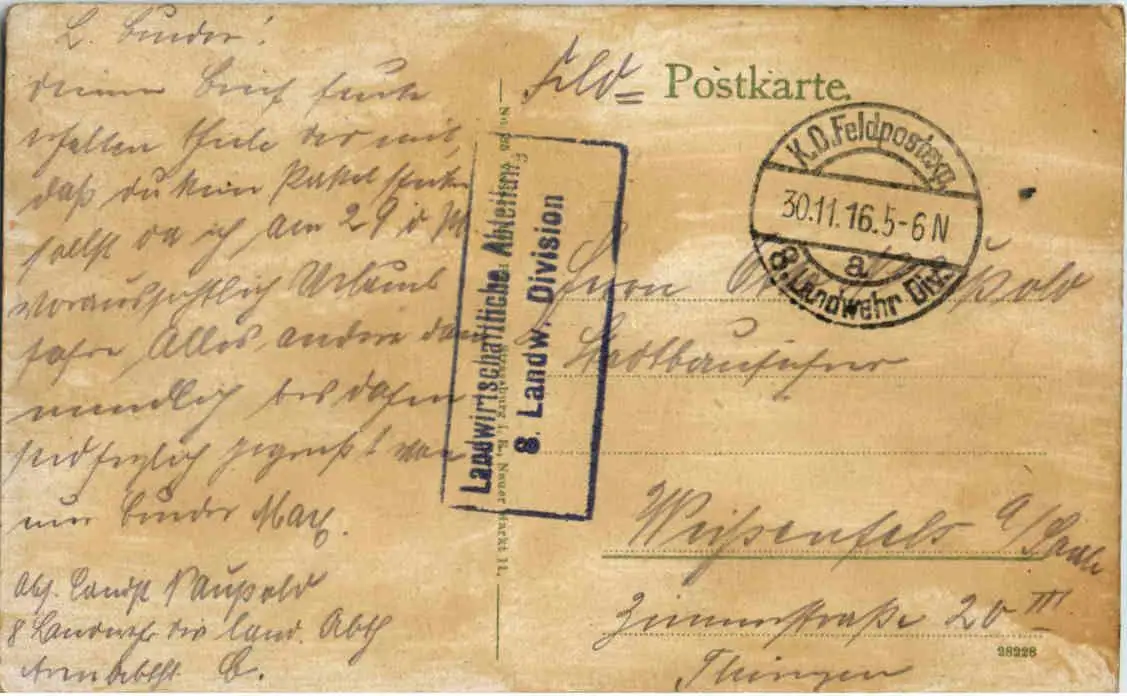 L. Bruder!
deinen Brief heute
erhalten theile dir mit,
daß du kein Paket
sollst da ich am 29 d M
voraussichtlich Urlaub
fahre Alles andere dann
mündlich bis dahin
seid herzlich gegrüßt von
Bruder Max.
Abs. Landst Laupold
8 Landwehr div land. Abth
C.
Feld
Postkarte.
K.D.Feldpostexp.
30.11.16.5-6N
a
8. Landwehr Div.
Landwirtschaftliche Abteilung
8. Landw. Division
i. E., Neuer Markt 11.
Herrn
Stadtbauführer
Weißenfels a/Saale
Zimmerstraße 20 III
Thüringen
28228